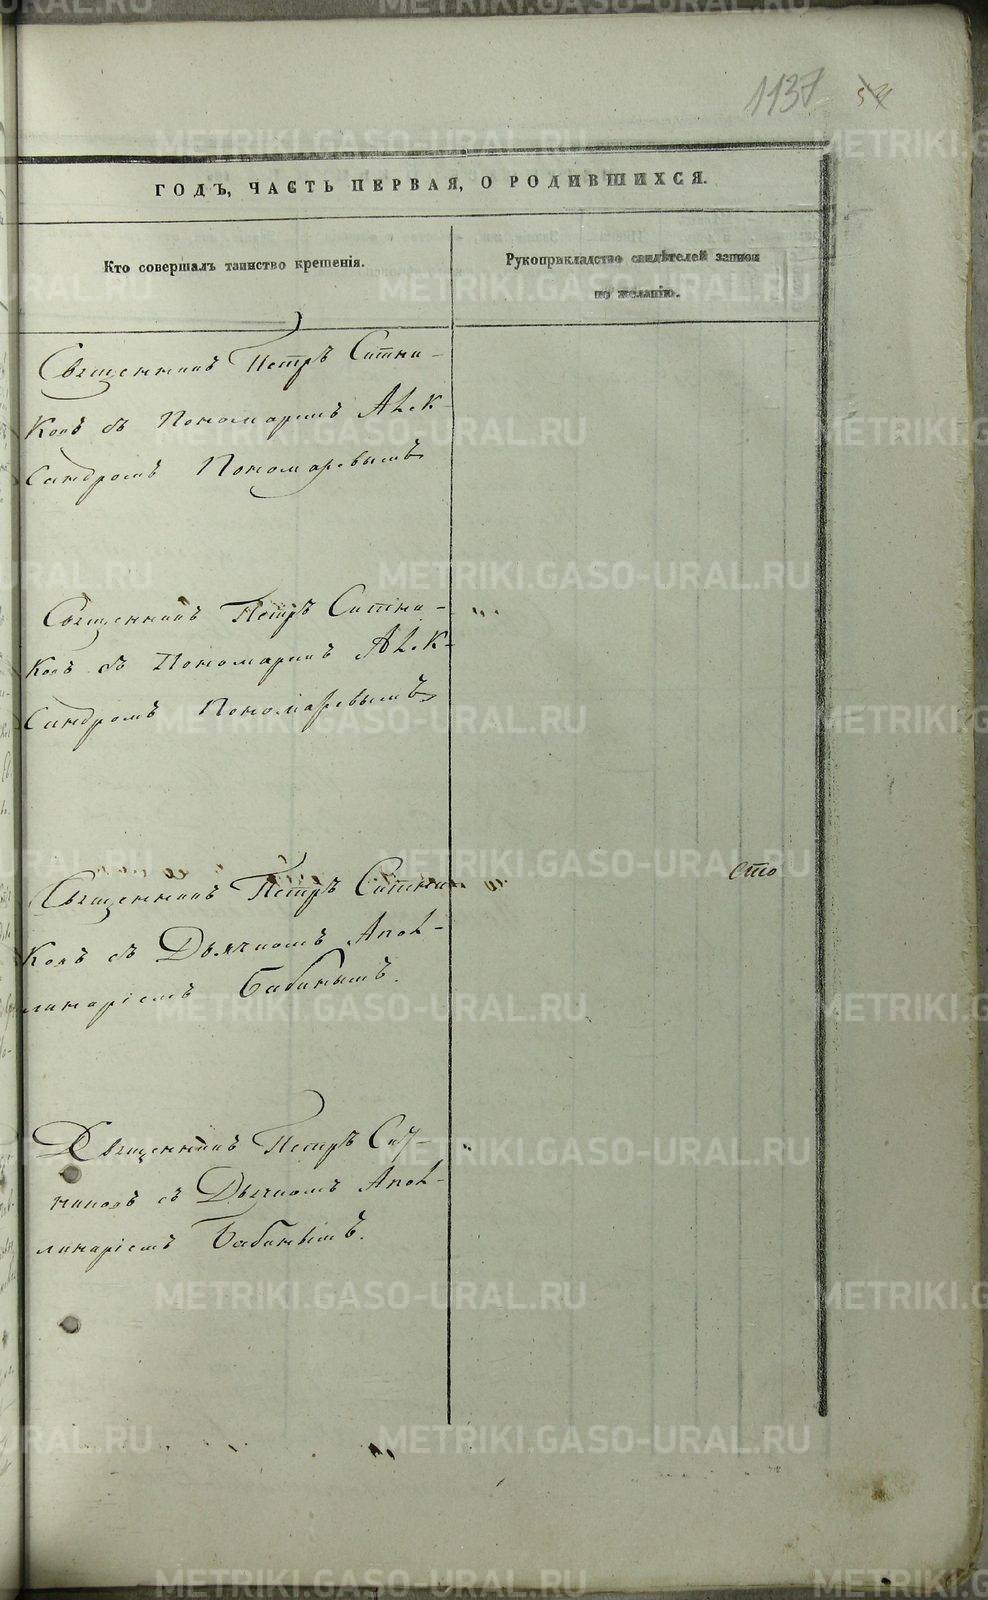 1137
ГОДЪ, ЧАСТЬ ПЕРВАЯ, О РОДИВШИХСЯ.
Кто совершалъ таинство крещенія.
Рукоприкладство свидѣтелей записи
по желанію.
Священникъ Петръ Ситни-
ковъ съ Пономаремъ Алек-
сандромъ Пономаревымъ
Священникъ Петръ Ситни-
ковъ съ Пономаремъ Алек-
сандромъ Пономаревымъ
Священникъ Петръ Ситни-
ковъ съ Дьячкомъ Апол-
линаріемъ Бабинымъ.
сто
Священникъ Петръ Сит-
никовъ съ Дьячкомъ Апол-
линаріемъ Бабинымъ.
METRIKI.GASO-URAL.RU